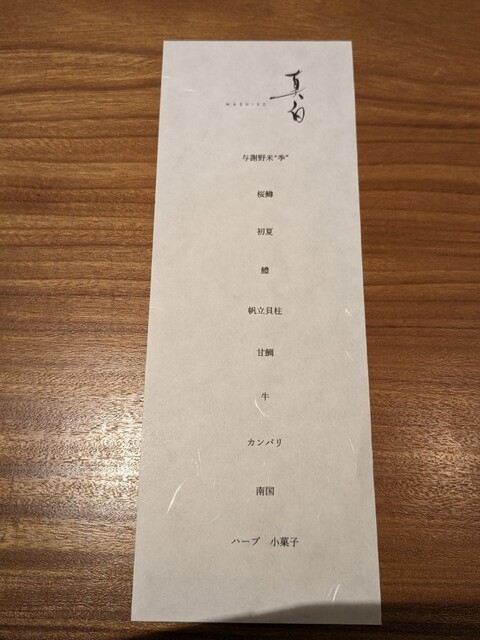 真白
MASHIRO
与謝野米"季"
桜鱒
初夏
鱧
帆立貝柱
甘鯛
牛
カンパリ
南国
ハーブ 小菓子